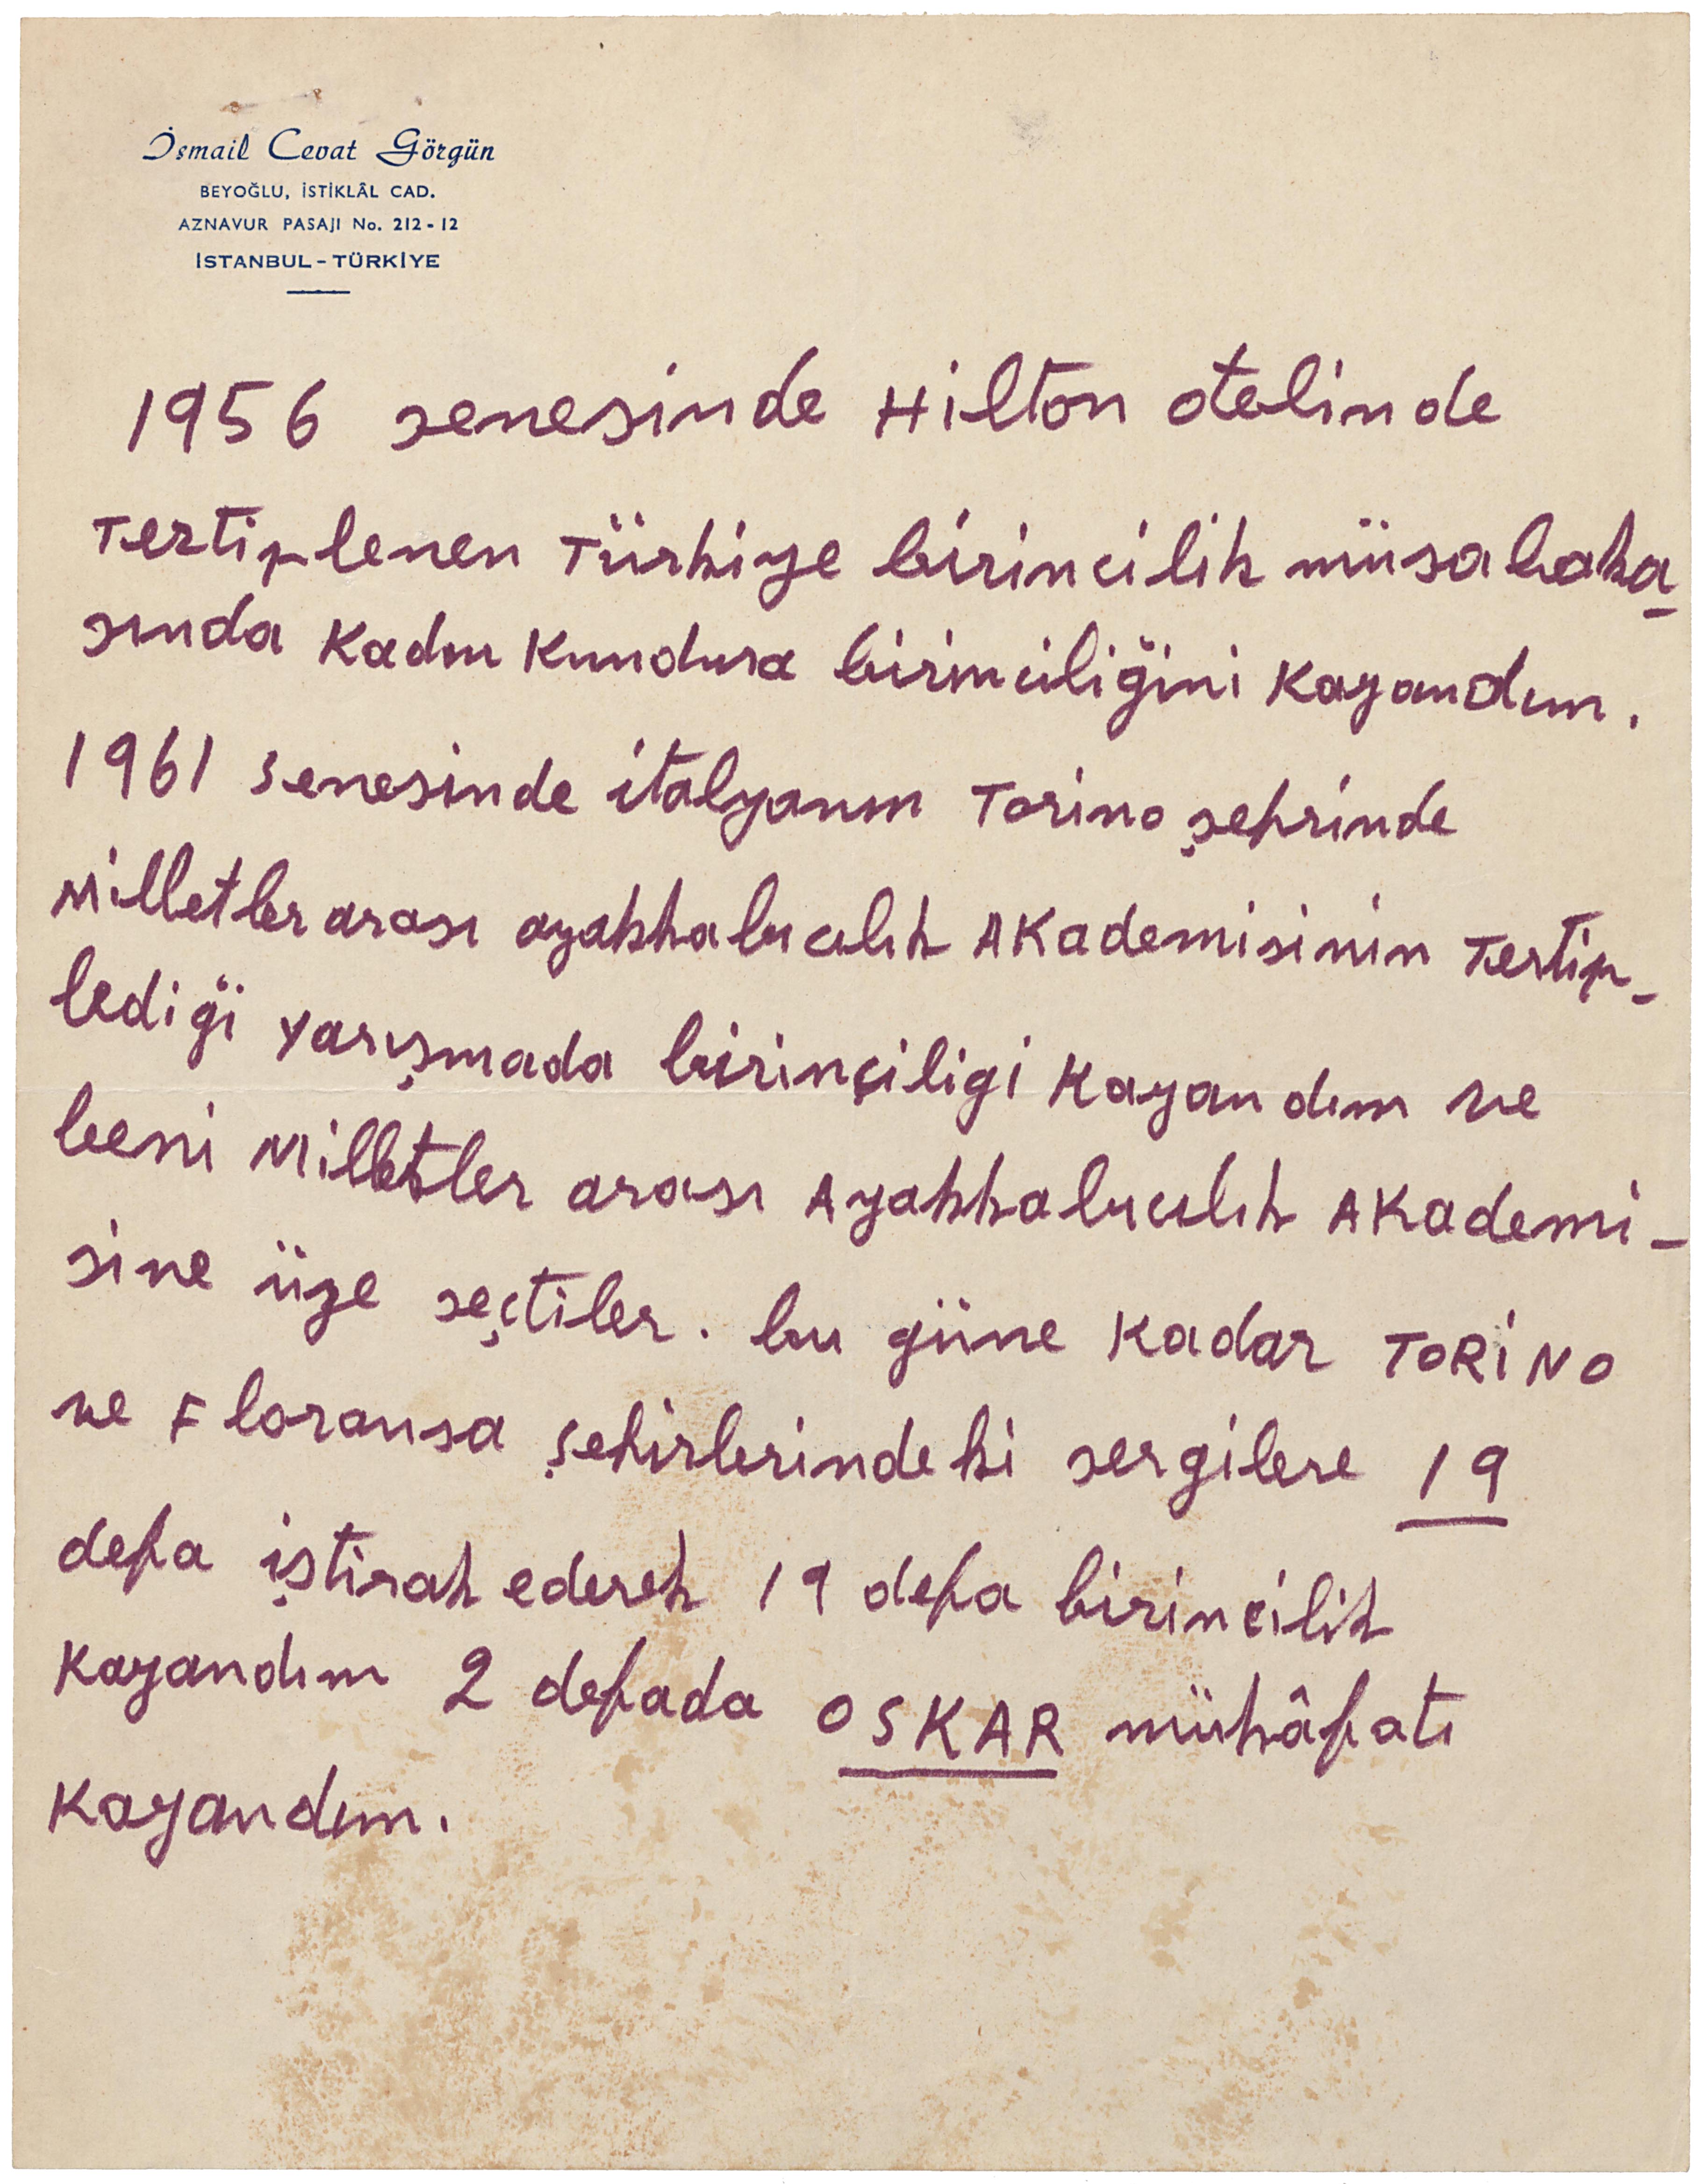 İsmail Cevat Görgün
BEYOĞLU, İSTİKLÂL CAD.
AZNAVUR PASAJI No. 212-12
İSTANBUL-TÜRKİYE
1956 senesinde Hilton otelinde
Tertiplenen Türkiye birincilik müsabaka_
sında Kadın Kundura birinciliğini Kazandım.
1961 senesinde italyanın Torino şehrinde
Milletler arası ayakkabıcılık AKademisinin Tertip_
lediği yarışmada birinçiligi Kazandım ve
beni Milletler arası Ayakkabıcılık AKademi-
sine üye seçtiler. bu güne Kadar TORİNO
ve Floransa şehirlerindeki sergilere 19
defa iştirak ederek 19 defa birincilik
Kazandım 2 defada OSKAR mükâfatı
Kazandım.